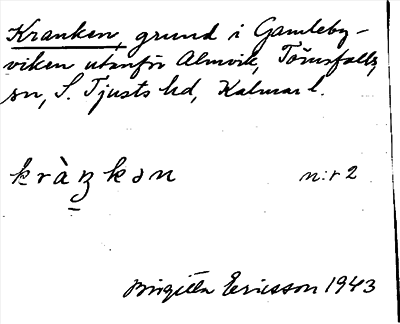 Kranken, grund i Gamleby-
viken utanför Almvik, Törnsfalls
sn, S. Tjusts hd, Kalmar l.
kràŋkən n:r 2
Birgitta Ericsson 1943